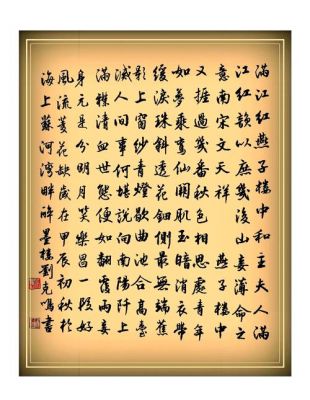 滿江紅燕子樓中和王夫人滿
江紅韻以庶幾後山妾薄命之
意南宋文天祥 燕子樓中
又捱過幾番秋色相思處青年
如夢乘鸞仙闕肌玉暗消衣帶
緩淚珠斜透花鈿側最無端蕉
影上窗紗青燈歇曲池合高臺
滅人間事何堪說向南陽阡上
滿襟清血世態便如翻覆雨妾
身元是分明月笑樂昌一段好
風流菱花缺歲在甲辰初秋於
海上蘇河灣畔墨樓劉克鳴書